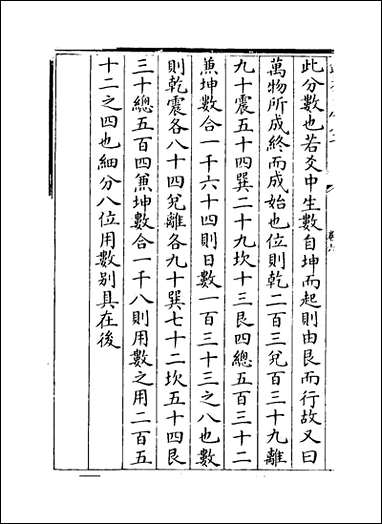 此分數也若爻中生數自坤而起則由艮而行故又曰
萬物所成終而成始也位則乾二百三兌百三十九離
九十震五十四巽二十九坎十三艮四總五百三十二
蒹坤數合一千六十四則日數一百三十三之八也數
則乾震各八十四兌離各九十巽七十二坎五十四艮
三十總五百四蒹坤數合一千八則用數之用二百五
十二之四也細分八位用數別具在後